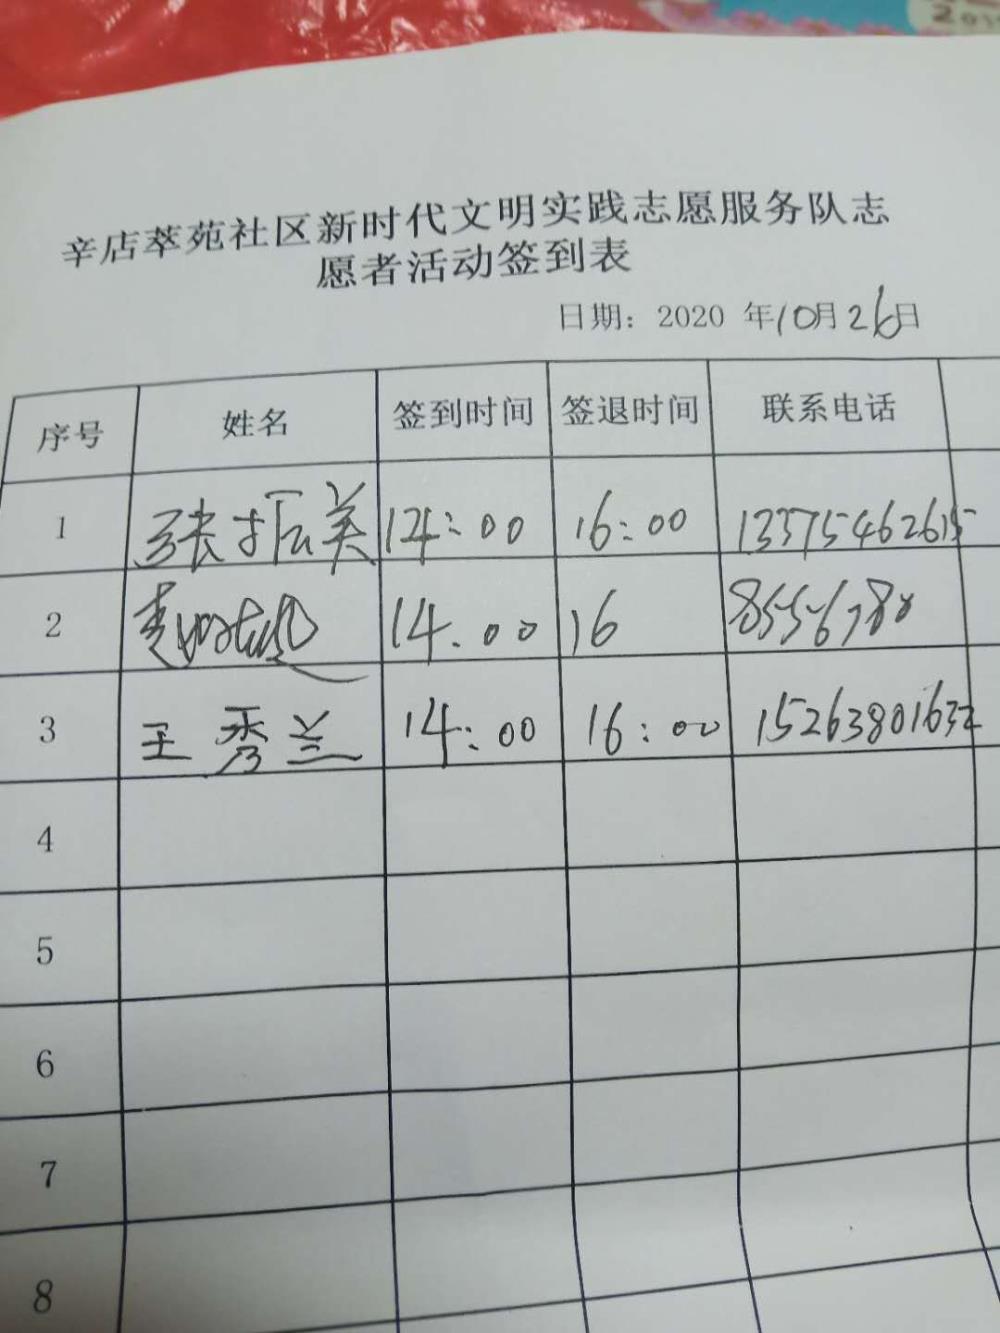 辛店萃苑社区新时代文明实践志愿服务队志
愿者活动签到表
日期：2020 年10月26日
序号 姓名 签到时间 签退时间 联系电话
1 张振美 14:00 16:00 13375462615
2 14.00 16 8556780
3 王秀兰 14:00 16:00 15263801632
4
5
6
7
8